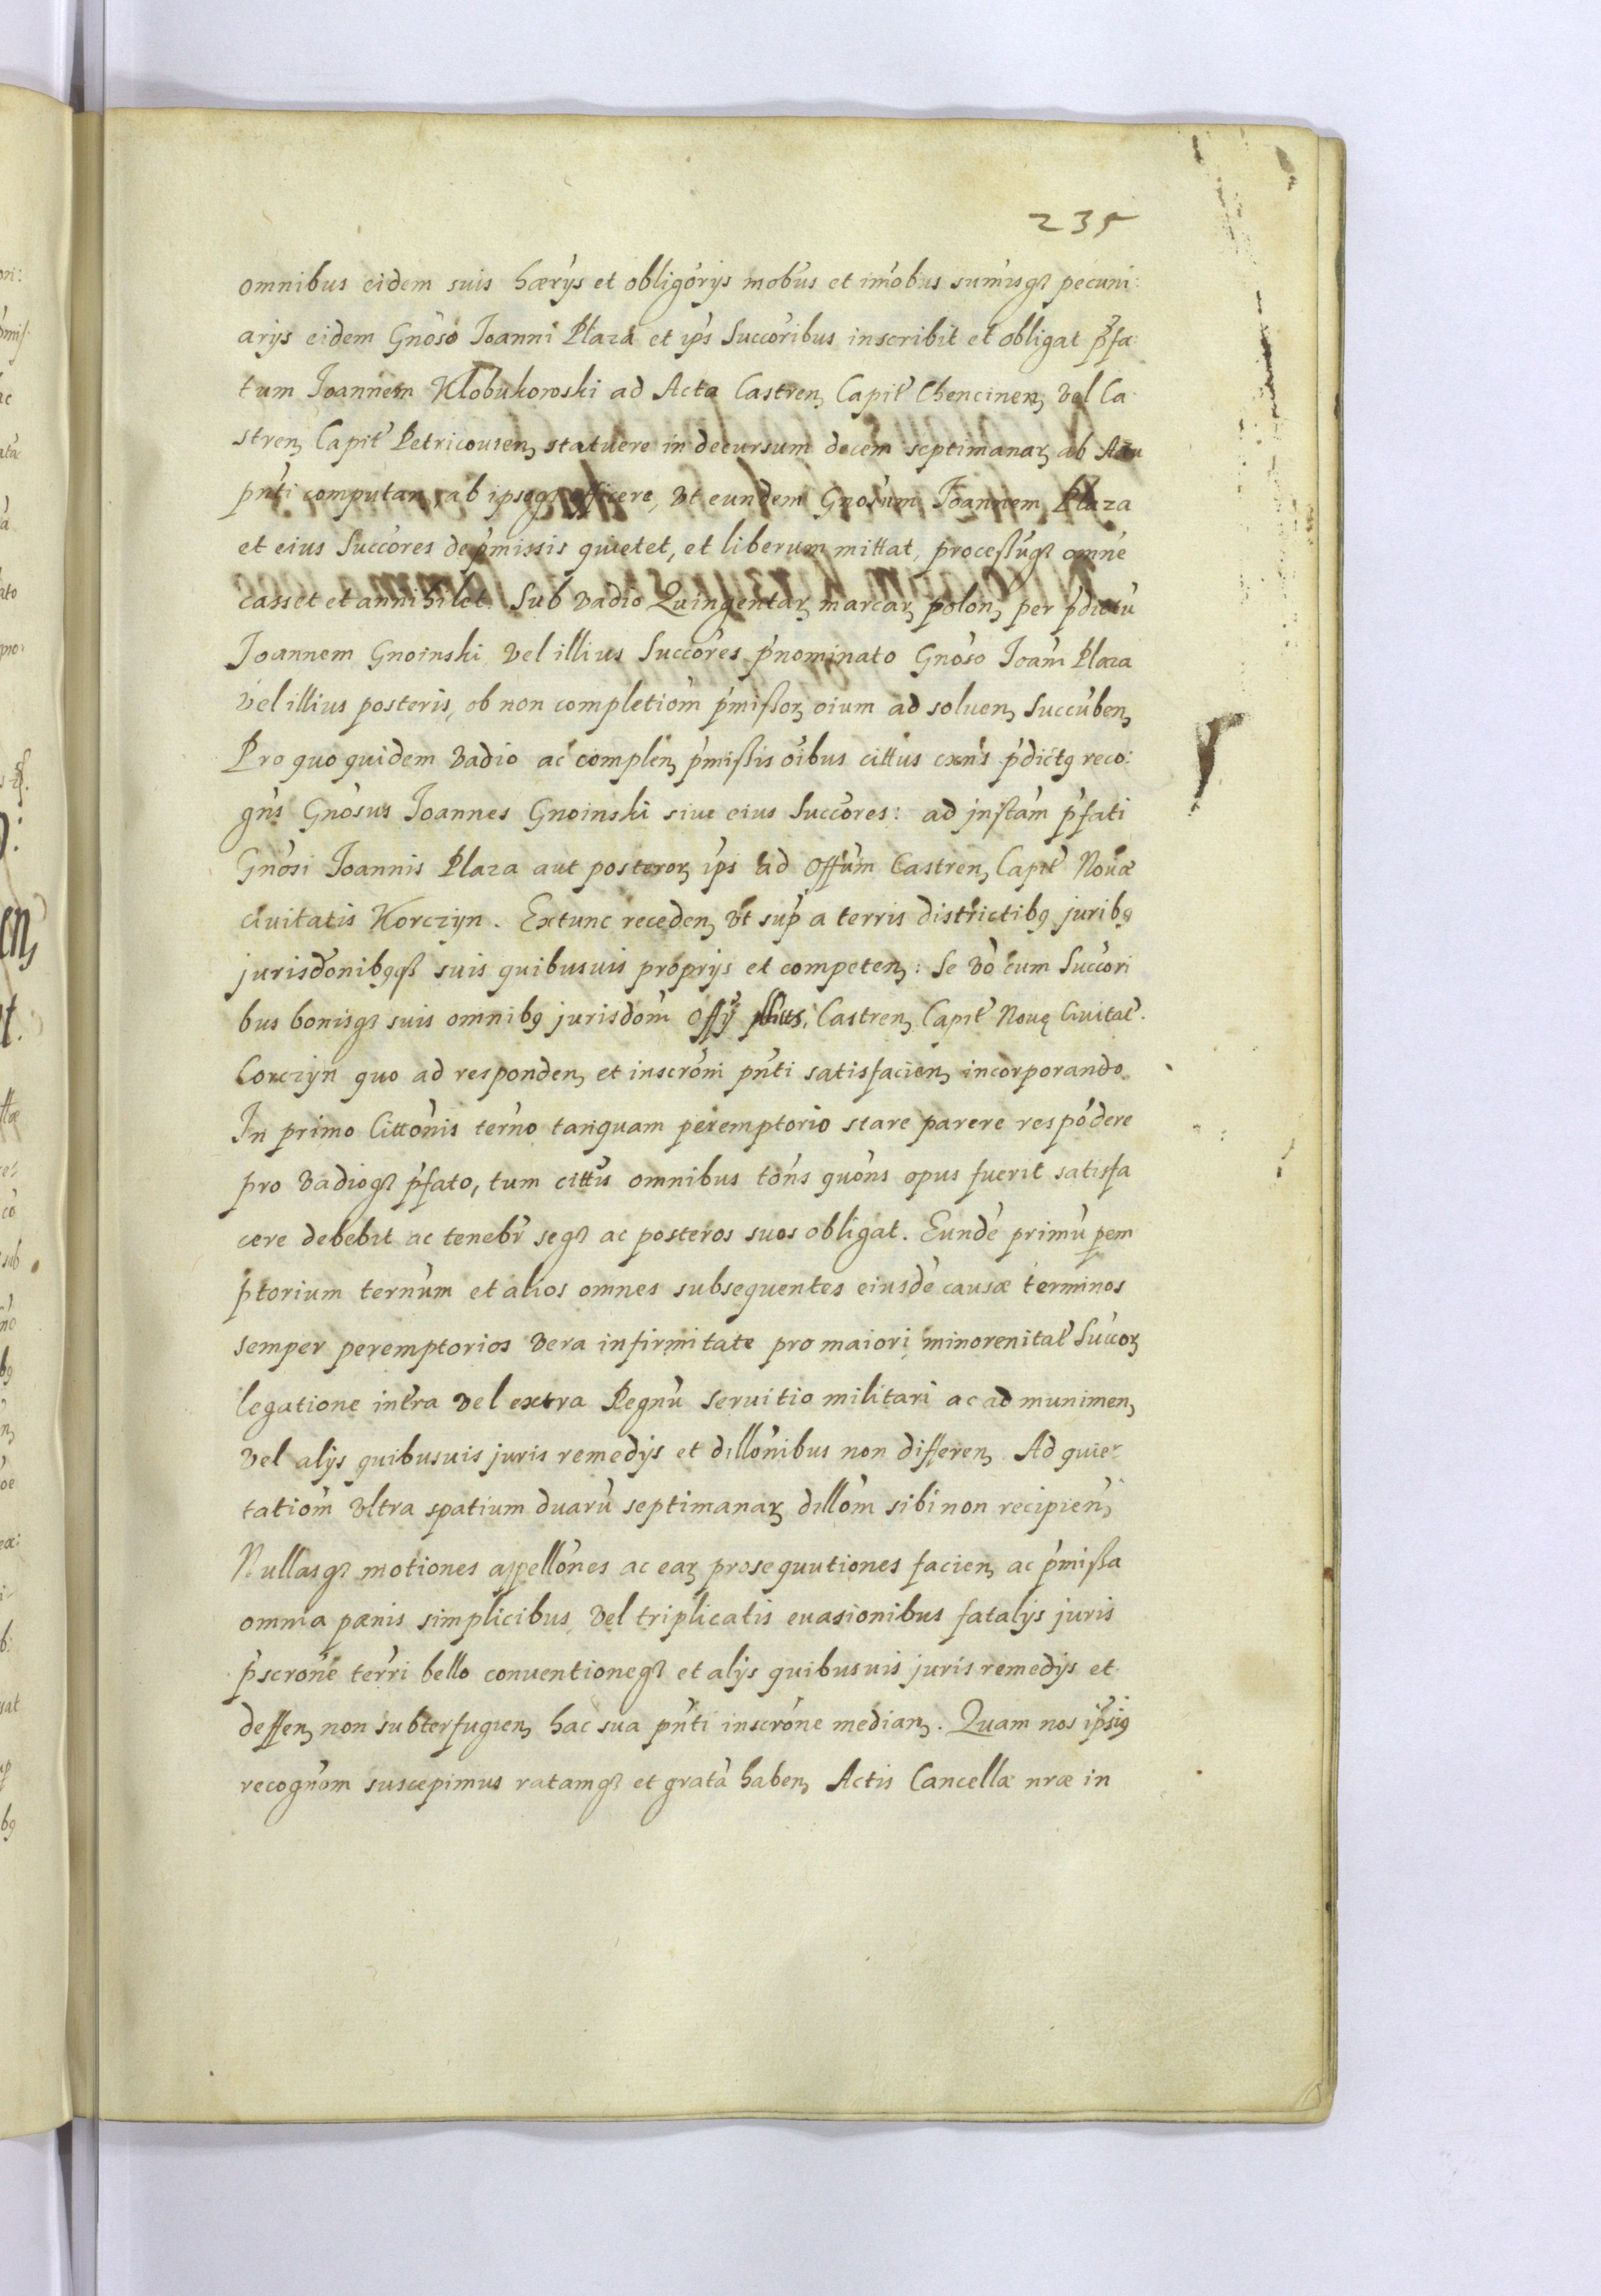 235
omnibus eidem suis hærijs et obligorijs mobus et imobus sumusqꝫ pecuni:
arijs eidem Gnoso Ioanni Plaza et ips Succoribus inscribit et obligat pfa:
tum Ioannem Klobukowski ad Acta Castren Capit Chencinen Vel Ca
stren Capit Petricouien statuere in decursum decem septimanar ab Actu
pnti computan ab ipsoqꝫ efficere, Vt eundem Gnosum Ioannem Plaza
et eius Succores de pmissis quietet, et liberum mittat, processuqꝫ omne
casset et annihilet. Sub Vadio Quingentar marcar polon per pdictu
Ioannem Gnoinski Vel illius Succores pnominato Gnoso Ioani Plaza
Vel illius posteris, ob non completiom pmißor oium ad soluen Succuben
Pro quo quidem Vadio ac complen pmißis oibus cittus exns pdictq reco:
gns Gnosus Ioannes Gnoinski siue eius Succores: ad jnstam pfati
Gnosi Ioannis Plaza aut posteror ips ad Offum Castren Capit Nouæ
ciuitatis Korczyn. Extunc receden Vt sup a terris districtibq juribq
jurisdonibqqꝫ suis quibusuis proprijs et competen: Se Vo cum Succori
bus bonisqꝫ suis omnibq jurisdom Offÿ Castren Capit Nouę Ciuitat.
Corczyn quo ad responden et inscroni pnti satisfacien incorporando
In primo Cittonis terno tanquam peremptorio stare parere respodere
pro Vadioqꝫ pfato, tum cittus omnibus tons quons opus fuerit satisfa
cere debebit ac tenebr seqꝫ ac posteros suos obligat. Eunde primu pem
ptorium ternum et alios omnes subsequentes eiusde causæ terminos
semper peremptorios Vera infirmitate pro maiori minorenitat Succor
legatione intra Vel extra Regnu seruitio militari ac ad munimen
Vel alijs quibusuis juris remedijs et dillonibus non differen Ad quie
tatiom Vltra spatium duaru septimanar dillom sibi non recipien
Nullasqꝫ motiones appellones ac ear prosequutiones facien ac pmißa
omnia pænis simplicibus Vel triplicatis euasionibus fatalijs juris
pscrone terri bello conuentioneqꝫ et alijs quibusuis juris remedijs et
deffen non subterfugien hac sua pnti inscrone median. Quam nos ipsiq
recognom suscepimus ratamqꝫ et grata haben Actis Cancellæ nræ in